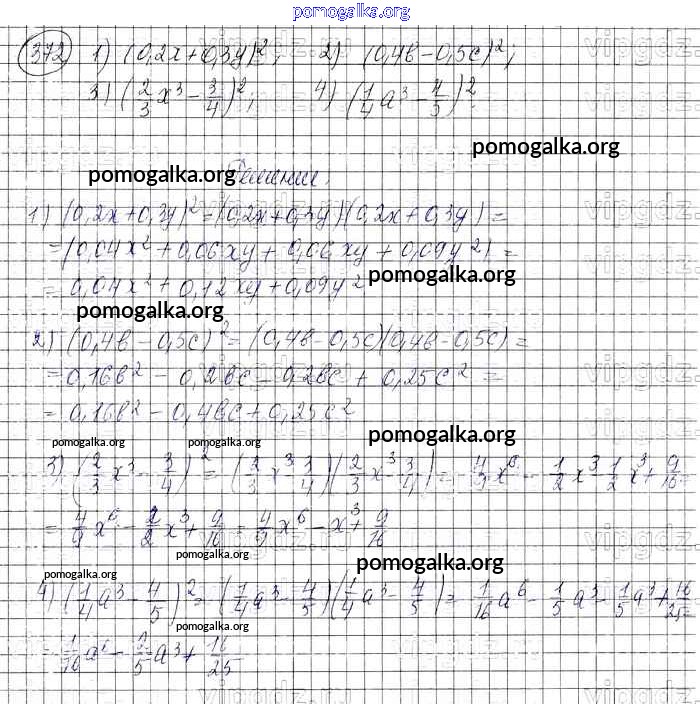 pomogalka.org
372 1) (0,2x+0,3y)²; 2) (0,4в-0,5с)²;
3) (2/3 x³ - 3/4)²; 4) (1/4 a³ - 4/5)²
pomogalka.org
pomogalka.org
Решение.
1) (0,2x+0,3y)²=(0,2x+0,3y)(0,2x+0,3y)=
=(0,04x²+0,06xy+0,06xy+0,09y²)=
pomogalka.org
=0,04x²+0,12xy+0,09y²
pomogalka.org
2) (0,4в-0,5с)²=(0,4в-0,5с)(0,4в-0,5с)=
=0,16в²-0,2вс-0,2вс+0,25с²=
=0,16в²-0,4вс+0,25с²
pomogalka.org
pomogalka.org
pomogalka.org
3) (2/3 x³ - 3/4)² = (2/3 x³ 3/4)(2/3 x³ - 3/4) = 4/9 x⁶ - 1/2 x³ - 1/2 x³ + 9/16 =
= 4/9 x⁶ - 2/2 x³ + 9/16 = 4/9 x⁶ - x³ + 9/16
pomogalka.org
pomogalka.org
pomogalka.org
4) (1/4 a³ - 4/5)² = (1/4 a³ - 4/5)(1/4 a³ - 4/5) = 1/16 a⁶ - 1/5 a³ - 1/5 a³ + 16/25 =
pomogalka.org
= 1/16 a⁶ - 2/5 a³ + 16/25
pomogalka.org